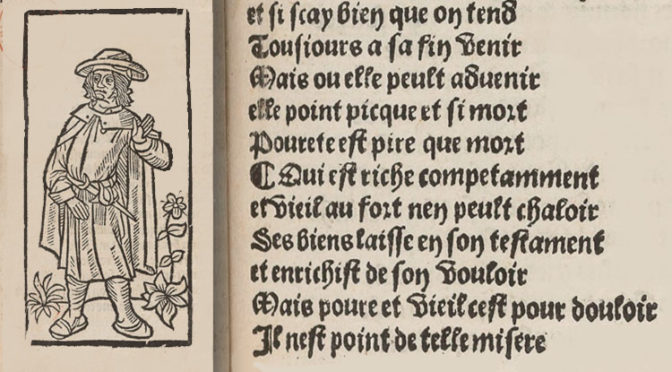 et si scay bien que on tend
Tousiours a sa fin venir
Mais ou elle peult aduenir
elle point picque et si mort
Pourete est pire que mort
¶ Qui est riche competamment
et vieil au fort nen peult chaloir
Ses biens laisse en son testament
et enrichist de son vouloir
Mais poure et vieil cest pour douloir
Il nest point de telle misere